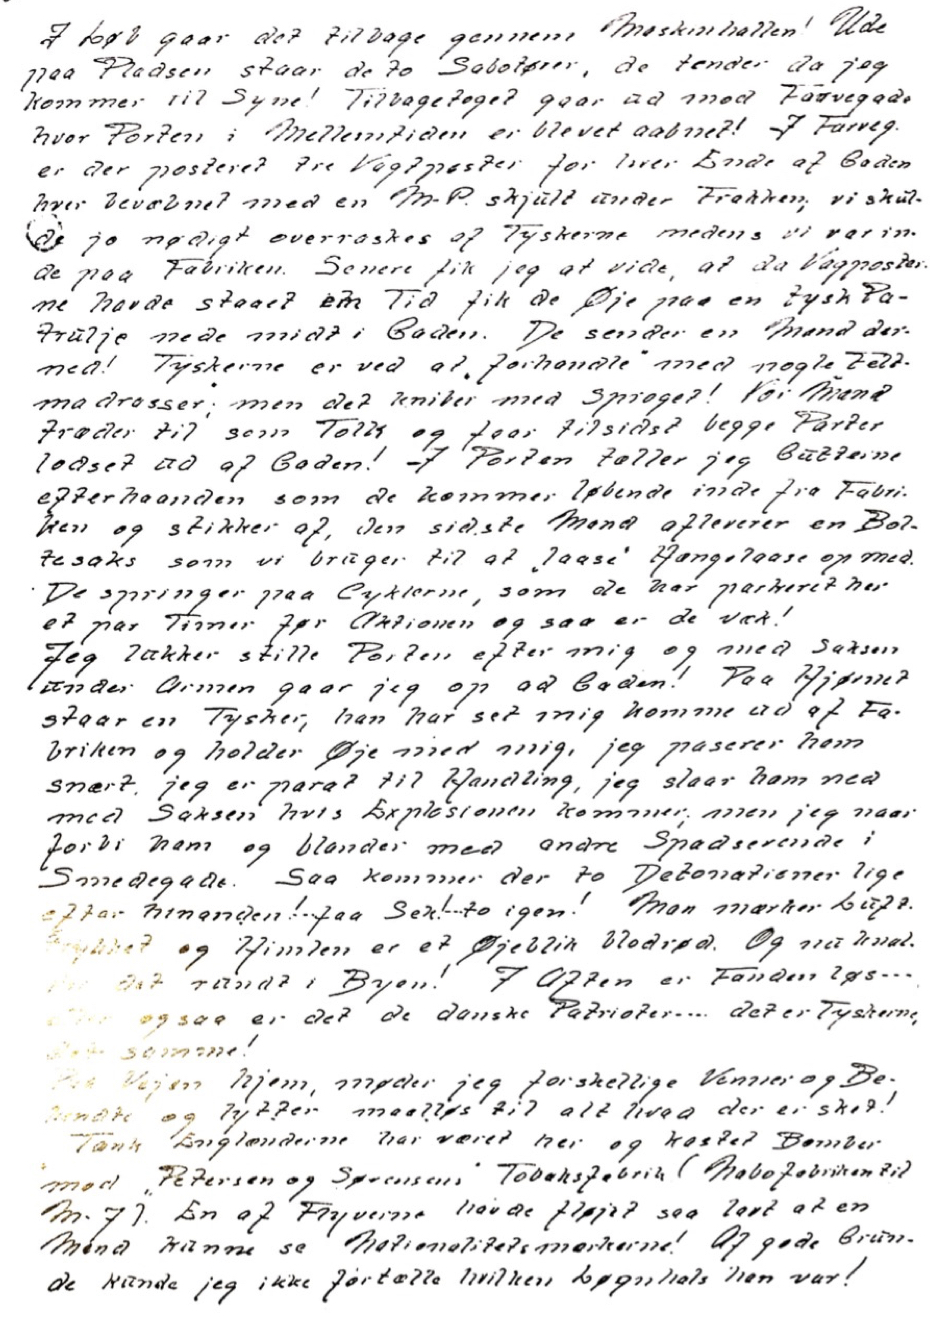 I Løb gaar det tilbage gennem Maskinhallen! Ude
paa Pladsen staar de to Sabotører, de tender da jeg
kommer til Syne! Tilbagetoget gaar ud mod Farvegade
hvor Porten i Mellemtiden er blevet aabnet! I Farveg.
er der posteret tre Vagtposter for hver Ende af Gaden
hver bevæbnet med en M.P. skjult under Frakken, vi skul-
de jo nødigt overraskes af Tyskerne medens vi var in-
de paa Fabriken. Senere fik jeg at vide, at da Vagposter-
ne havde staaet en Tid fik de Øje paa en tysk Pa-
trulje nede midt i Gaden. De sender en Mand der-
ned! Tyskerne er ved at „forhandle" med nogle Felt-
madrasser; men det kniber med Sproget! Vor Mand
træder til som Tolk og faar tilsidst begge Parter
lodset ud af Gaden! I Porten tæller jeg Gutterne
efterhaanden som de kommer løbende inde fra Fabri-
ken og stikker af, den sidste Mand afleverer en Bol-
tesaks som vi bruger til at „laase" Hængelaase op med.
De springer paa Cyklerne, som de har parkeret her
et par Timer før Aktionen og saa er de væk!
Jeg lukker stille Porten efter mig og med Saksen
under Armen gaar jeg op ad Gaden! Paa Hjørnet
staar en Tysker, han har set mig komme ud af Fa-
briken og holder Øje med mig, jeg paserer ham
snært, jeg er parat til Handling, jeg slaar ham ned
med Saksen hvis Explosionen kommer, men jeg naar
forbi ham og blander med andre Spadserende i
Smedegade. Saa kommer der to Detonationer lige
efter hinanden!--faa Sek!--to igen! Man mærker Luft-
trykket og Himlen er et Øjeblik blodrød. Og nu knal-
der det rundt i Byen! I Aften er Fanden løs---
eller ogsaa er det de danske Patrioter---- det er Tyskerne,
det samme!
Paa Vejen hjem, møder jeg forskellige Venner og Be-
kendte og lytter maalløs til alt hvad der er sket!
Tænk Englænderne har været her og kastet Bomber
mod „Petersen og Sørensens" Tobaksfabrik (Nabofabriken til
M. 7). En af Flyverne havde fløjet saa lavt at en
Mand kunne se Nationalitetsmærkerne! Af gode Grun-
de kunde jeg ikke fortælle hvilken Løgnhals han var!